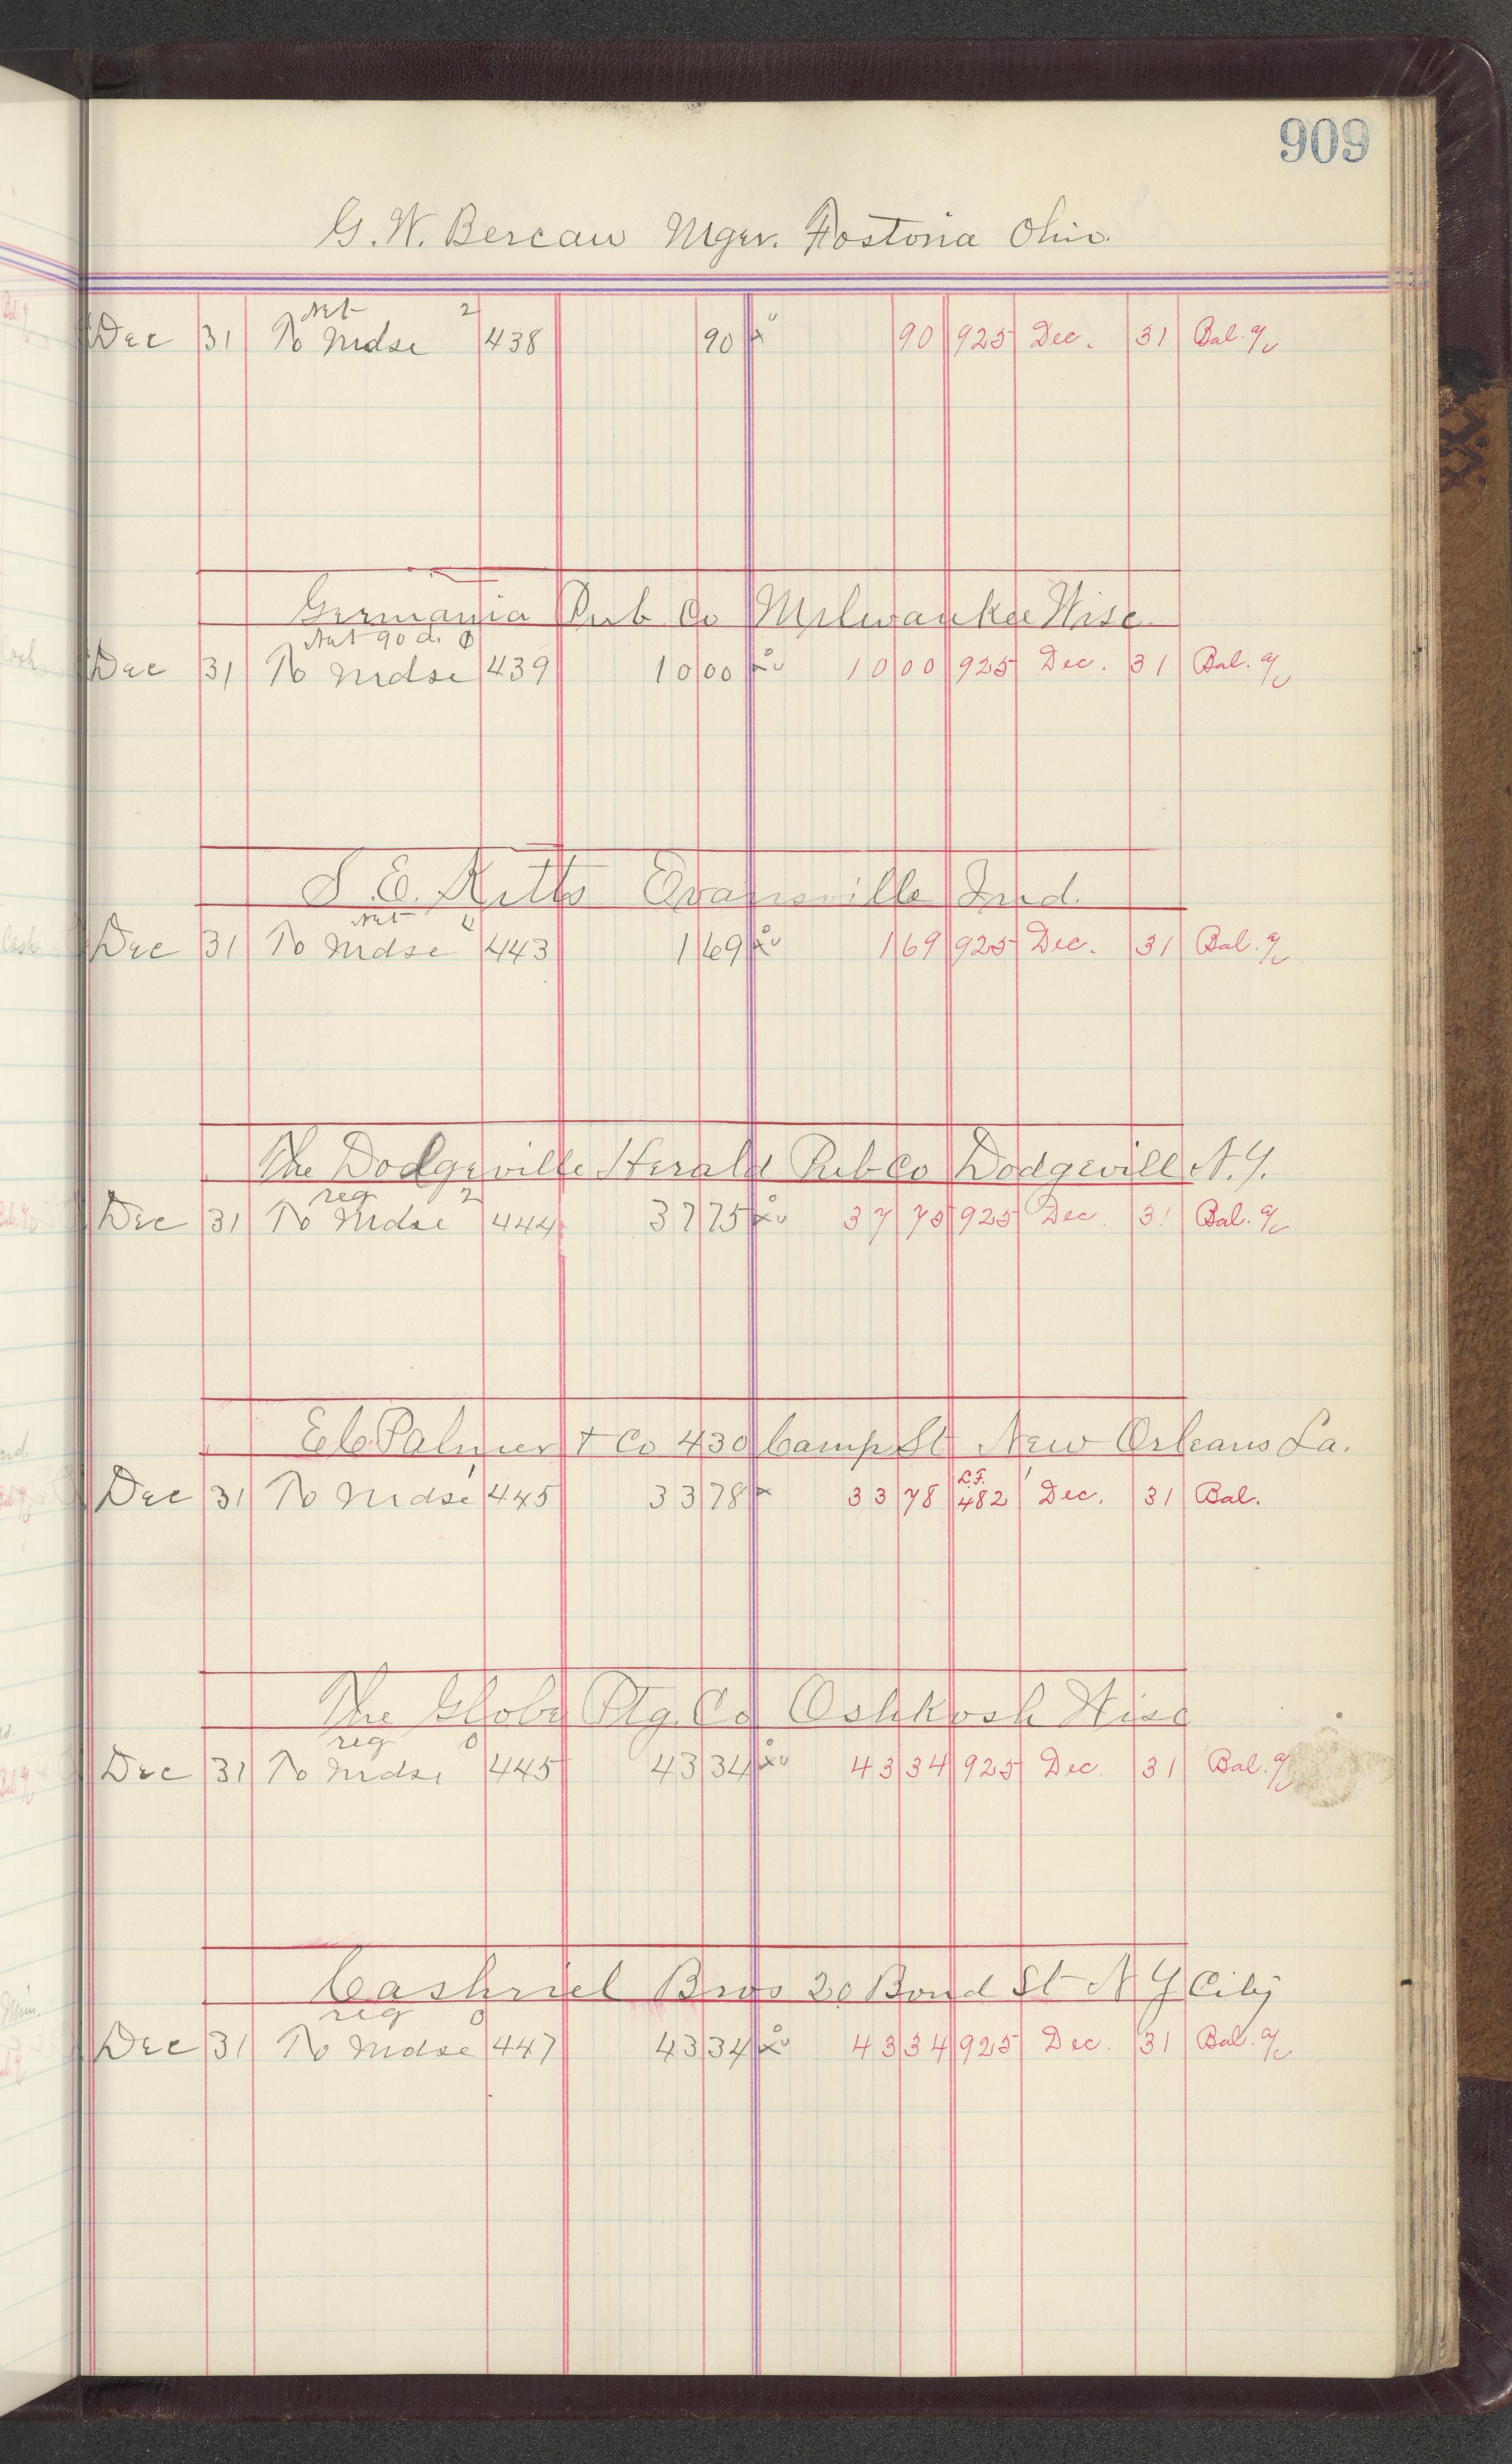 909
G. W. Bercaw Mger. Fostoria Ohio.
Net 2
Dec 31 To Mdse 438 90 90 925 Dec. 31 Bal. a/c
Germania Pub Co Milwaukee Wisc
Net 90 d.
Dec 31 To Mdse 439 10 00 10 00 925 Dec. 31 Bal. a/c
S. E. Kitts Evansville Ind.
Net 4
Dec 31 To Mdse 443 1 69 1 69 925 Dec. 31 Bal. a/c
The Dodgeville Herald Pub Co Dodgevill N.Y.
reg 2
Dec 31 To Mdse 444 37 75 37 75 925 Dec 31 Bal. a/c
E C Palmer & Co 430 Camp St New Orleans La.
L.F.
Dec 31 To Mdse 445 33 78 33 78 482 Dec. 31 Bal.
The Globe Ptg. Co Oshkosh Wisc
reg 0
Dec 31 To Mdse 445 43 34 43 34 925 Dec. 31 Bal. a/c
Cashriel Bros 20 Bond St N Y City
reg 0
Dec 31 To Mdse 447 43 34 43 34 925 Dec. 31 Bal. a/c